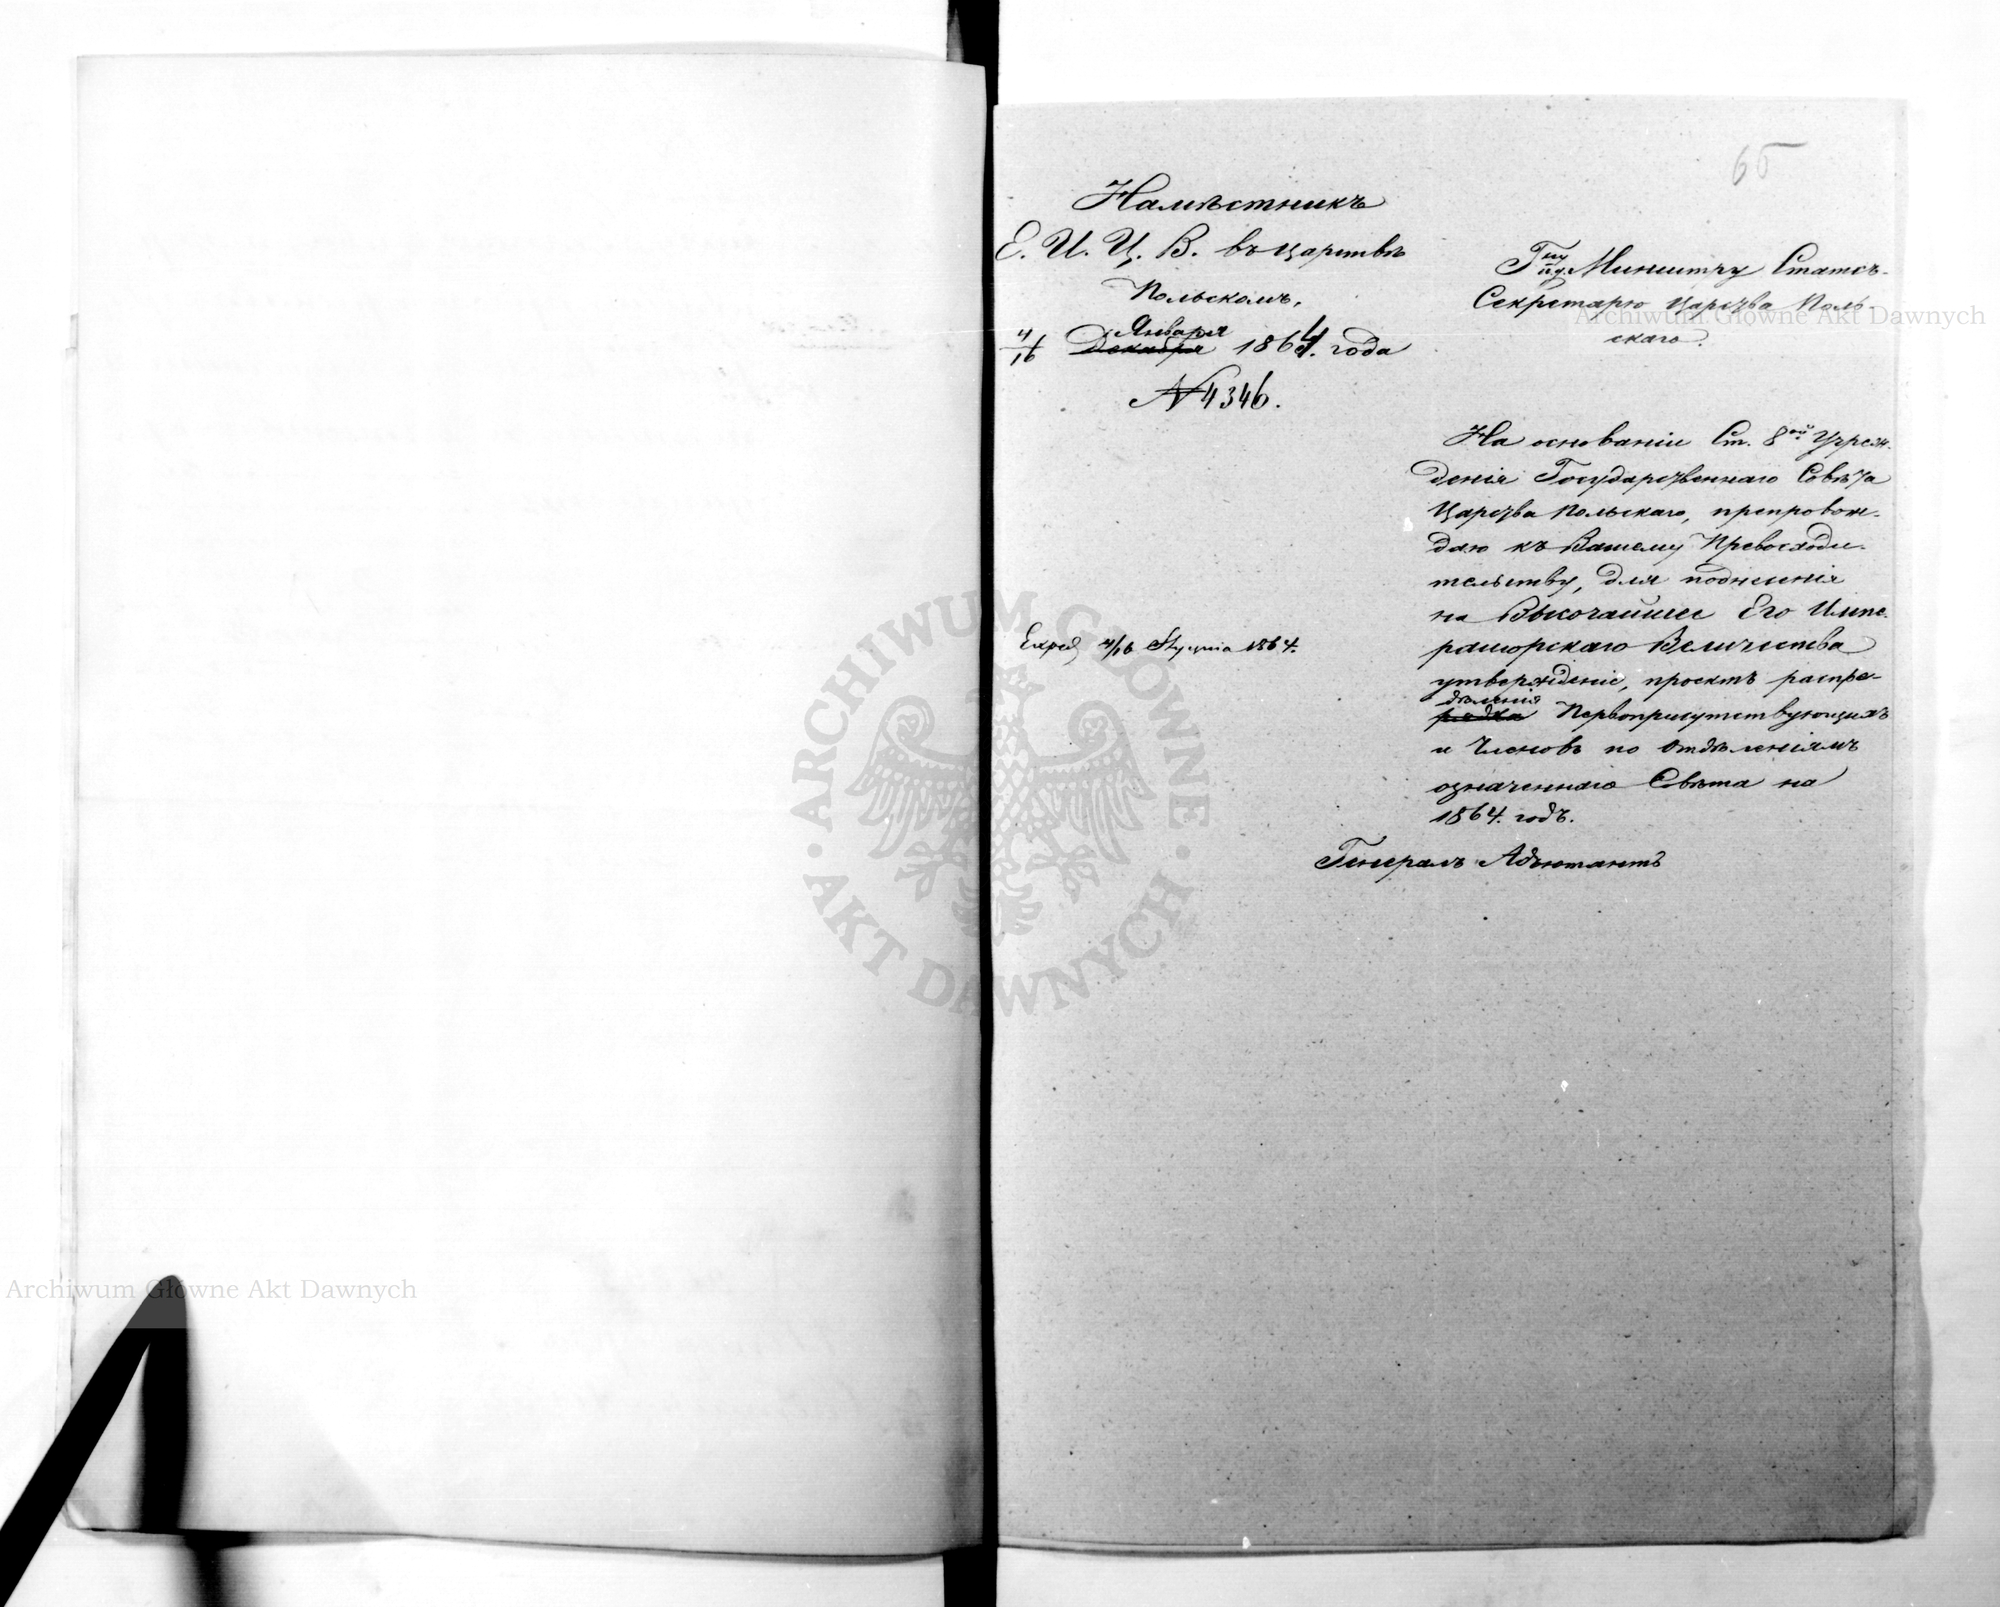 65
Намѣстникъ
Е. И. Ц. В. въ Царствѣ
Польскомъ.
Января
4/16 Декабря 1864. года
№ 4346.
Г ну Министру Статсъ-
Секретарю Царства Поль-
скаго.
На основаніи Ст. 8ой Учреж-
денія Государственнаго Совѣта
Царства Польскаго, препровож-
даю къ Вашему Превосходи-
тельству, для поднесенія
на Высочайшее Его Импе-
раторскаго Величества
утвержденіе, проектъ распре-
дѣленія
рядка Первоприсутствующихъ
и Членовъ по Отдѣленіямъ
означеннаго Совѣта на
1864. годъ.
Генералъ Адъютантъ
Exped 4/16 Stycznia 1864.
Archiwum Główne Akt Dawnych
ARCHIWUM GŁÓWNE AKT DAWNYCH
Archiwum Główne Akt Dawnych